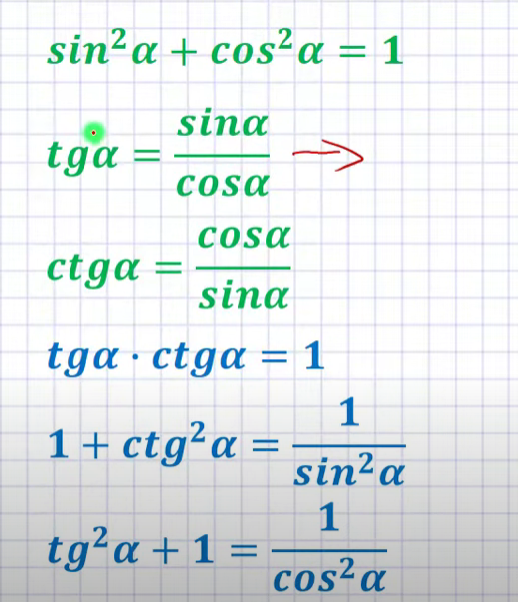 sin²α + cos²α = 1
tgα = sinα/cosα
ctgα = cosα/sinα
tgα · ctgα = 1
1 + ctg²α = 1/sin²α
tg²α + 1 = 1/cos²α